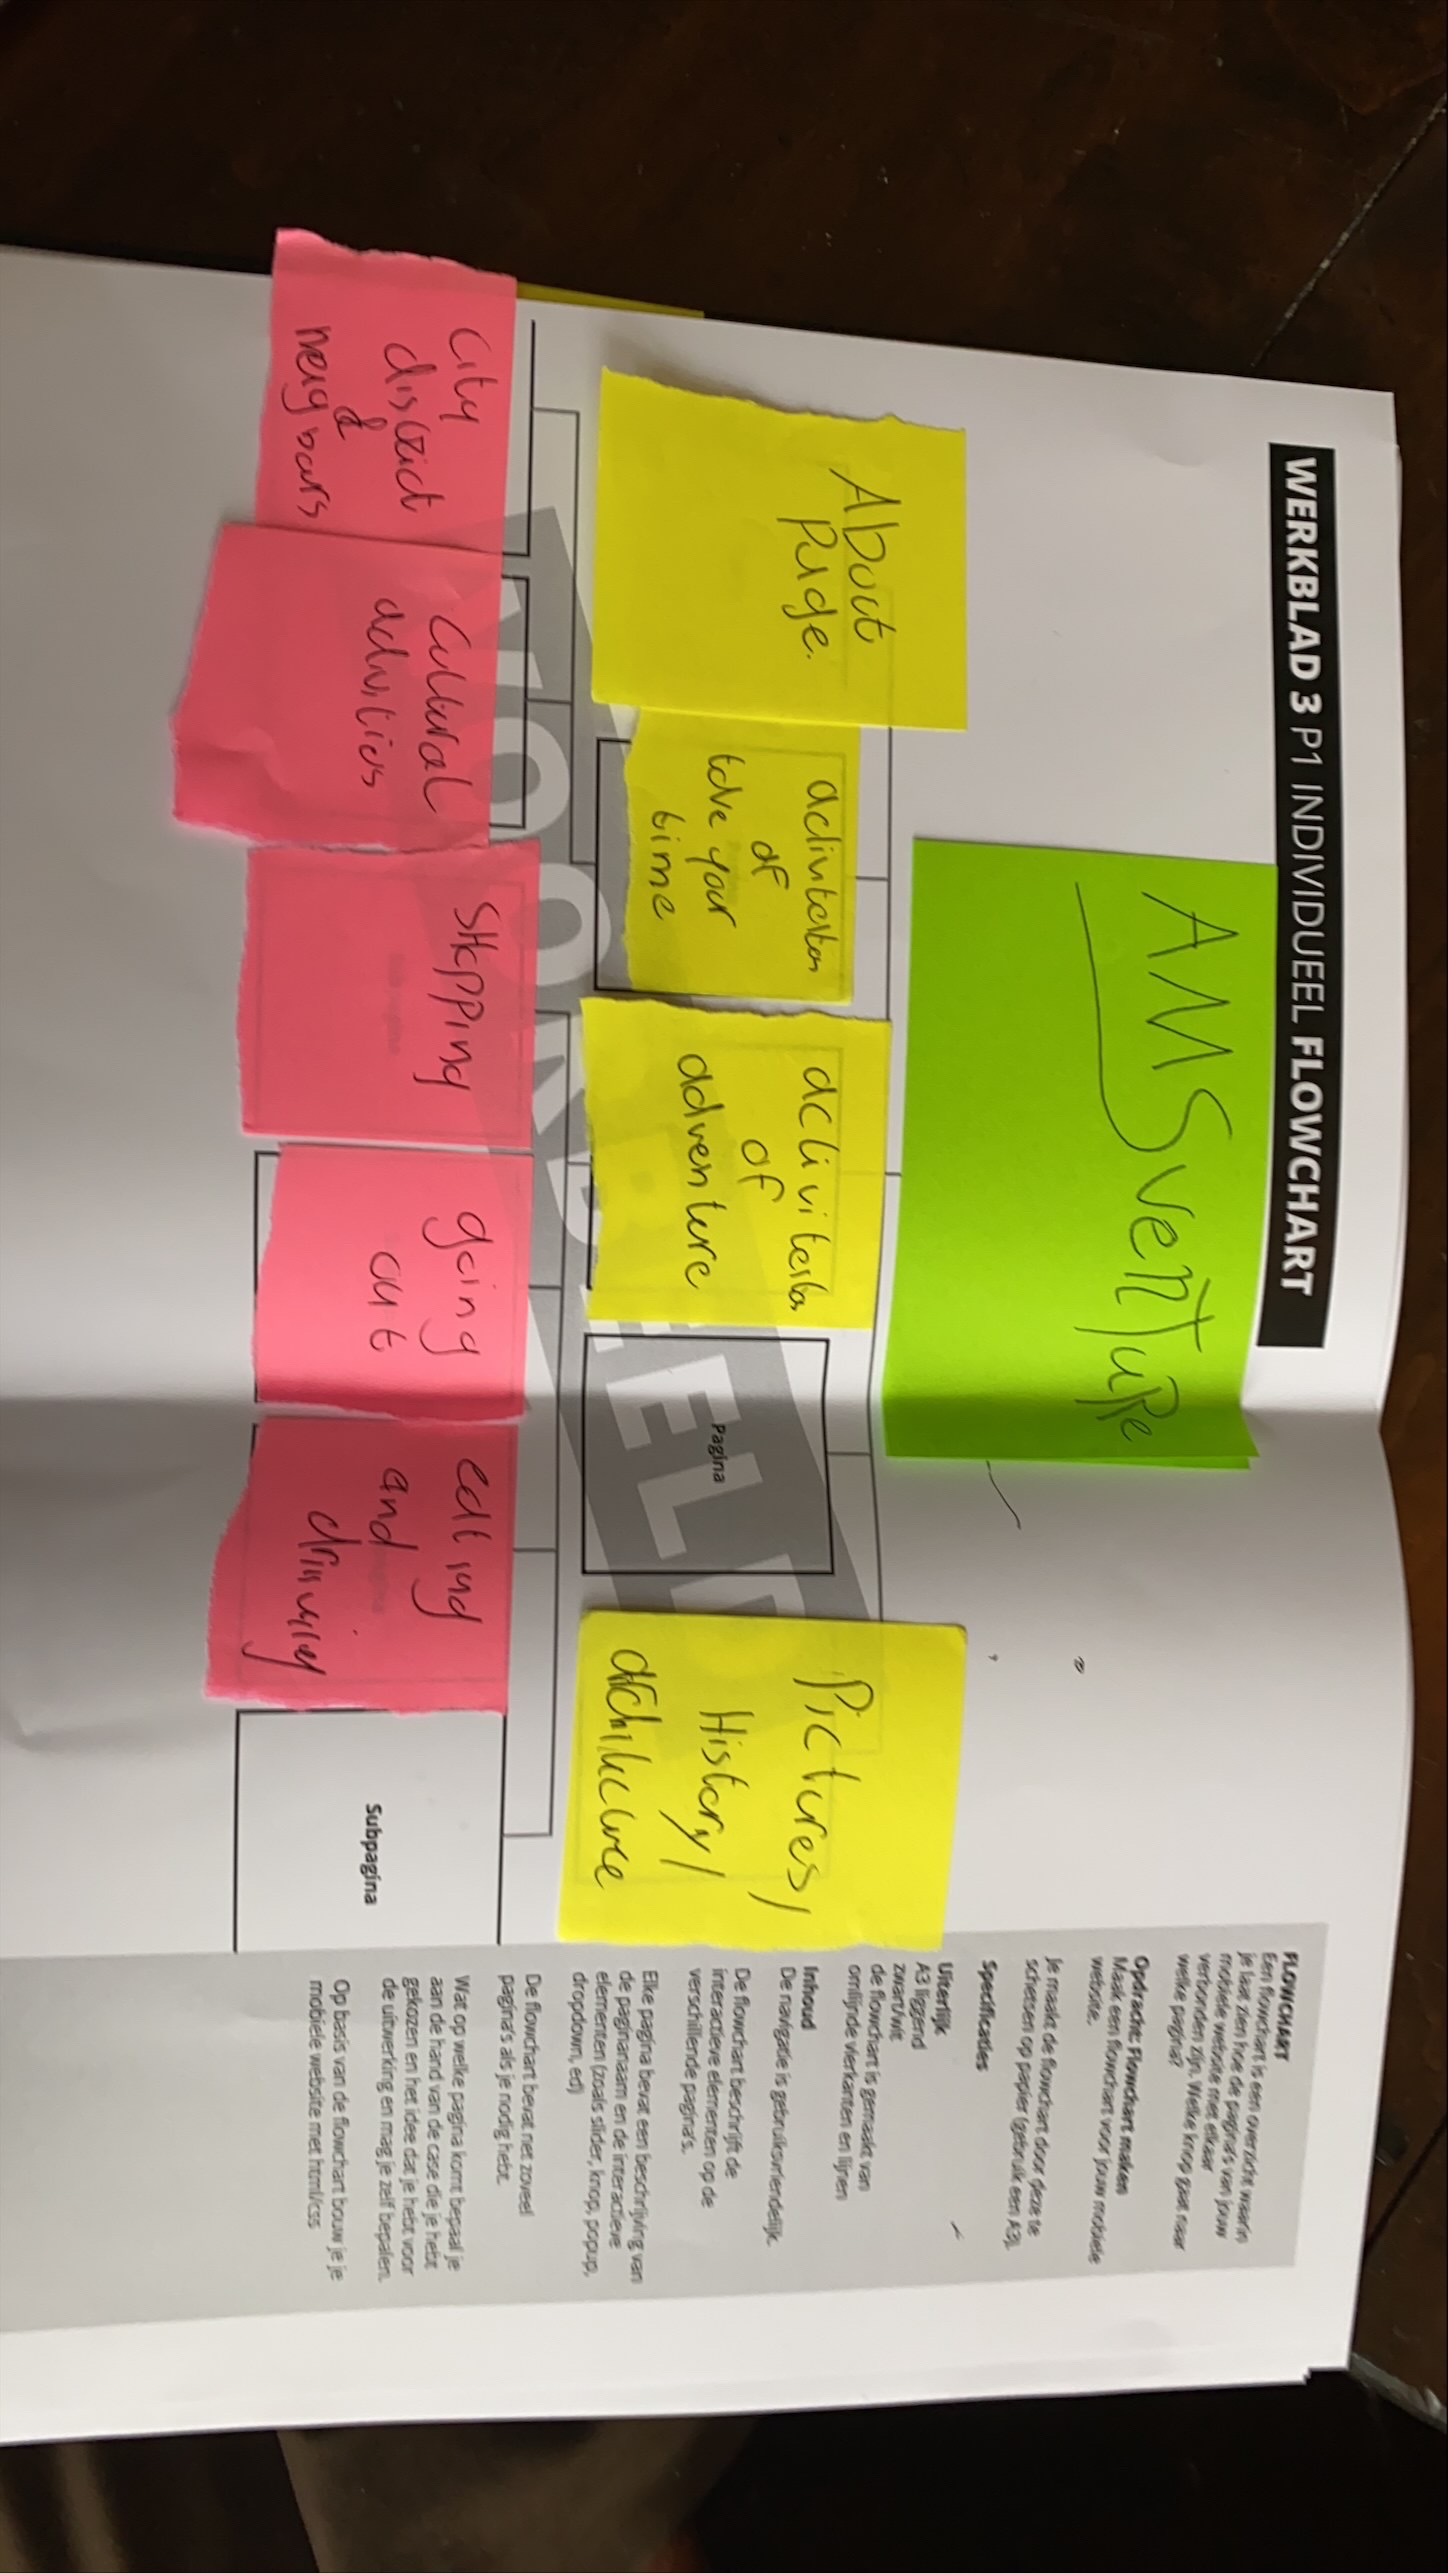 WERKBLAD 3 P1 INDIVIDUEEL FLOWCHART
AMSvenTuRe
About
page.
activiteiten
of
take your
time
activiteiten
of
adventure
Pagina
Pictures,
History,
architecture
VOORBEELD
City
district
&
neigbours
Cultural
activities
SHopping
going
out
eating
and
drinking
Subpagina
FLOWCHART
Een flowchart is een overzicht waarin
je laat zien hoe de pagina's van jouw
mobiele website met elkaar
verbonden zijn. Welke knop gaat naar
welke pagina?
Opdracht: Flowchart maken
Maak een flowchart voor jouw mobiele
website.
Je maakt de flowchart door deze te
schetsen op papier (gebruik een A3).
Specificaties
Uiterlijk
A3 liggend
zwart/wit
de flowchart is gemaakt van
omlijnde vierkanten en lijnen
Inhoud
De navigatie is gebruiksvriendelijk.
De flowchart beschrijft de
interactieve elementen op de
verschillende pagina's.
Elke pagina bevat een beschrijving van
de paginanaam en de interactieve
elementen (zoals slider, knop, popup,
dropdown, ed)
De flowchart bevat net zoveel
pagina's als je nodig hebt.
Wat op welke pagina komt bepaal je
aan de hand van de case die je hebt
gekozen en het idee dat je hebt voor
de uitwerking en mag je zelf bepalen.
Op basis van de flowchart bouw je je
mobiele website met html/css